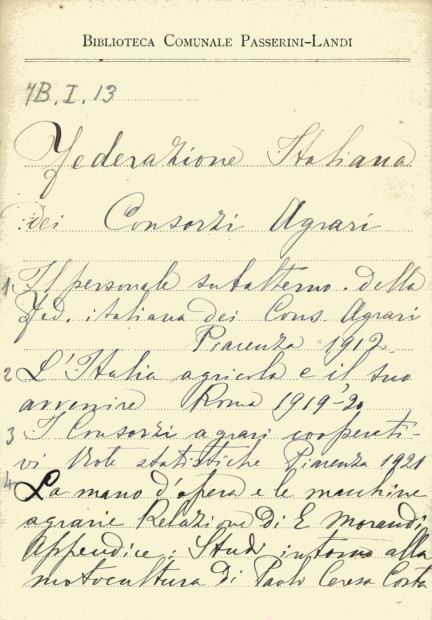 BIBLIOTECA COMUNALE PASSERINI-LANDI
7B. I. 13
Federazione Italiana
dei Consorzi Agrari
1 Il personale subalterno della
Fed. italiana dei Cons. Agrari
Piacenza 1912
2 L'Italia agricola e il suo
avvenire Roma 1919-20
3 I Consorzi agrari cooperati-
vi Note statistiche Piacenza 1921
4 La mano d'opera e le macchine
agrarie Relazione di E. Morandi
Appendice: Studi intorno alla
motocultura di Paolo Ceresa Costa